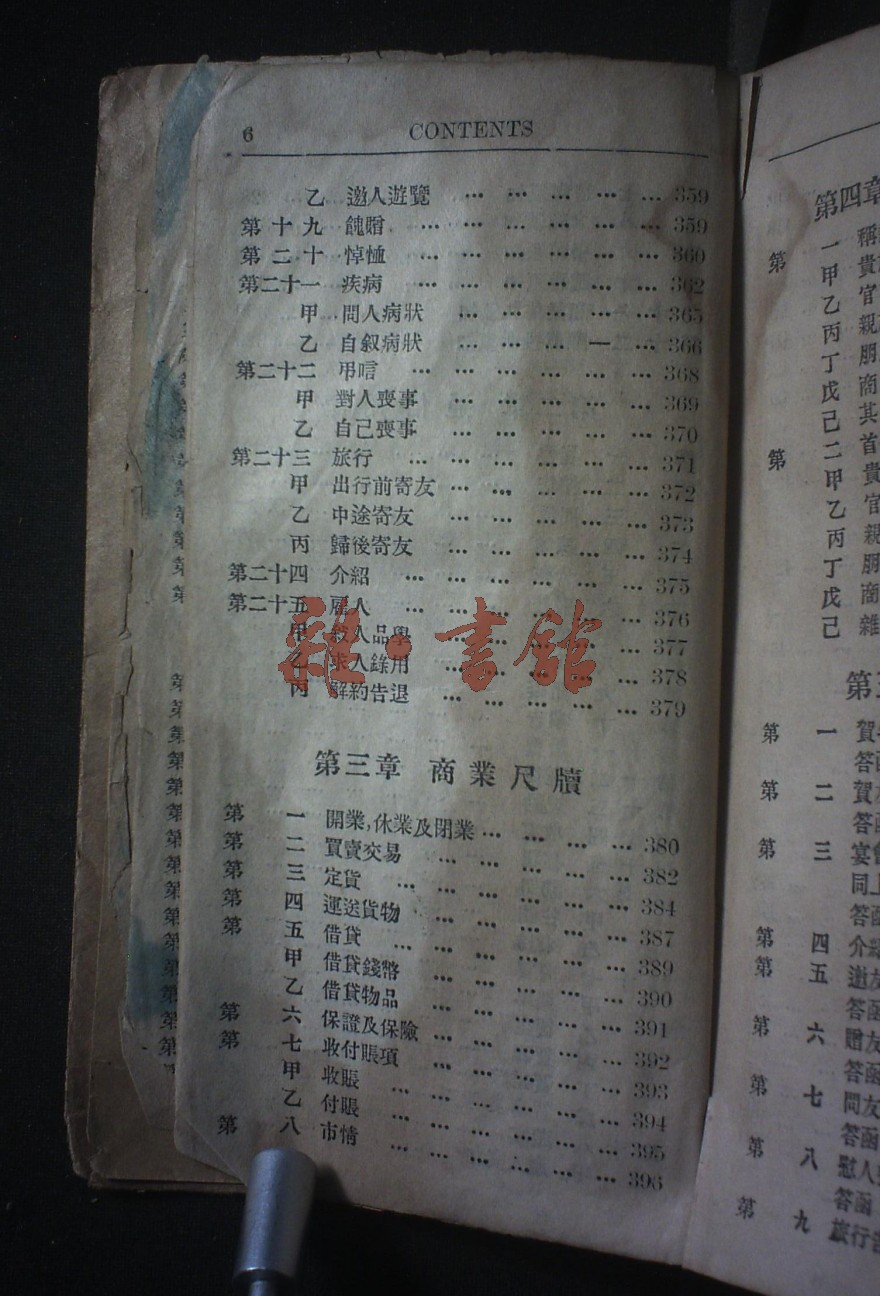 6 CONTENTS
乙 邀人遊覽 … … … … … 359
第十九 餽贈 … … … … … … 359
第二十 悼恤 … … … … … … 360
第二十一 疾病 … … … … … … 362
甲 問人病狀 … … … … … 365
乙 自叙病狀 … … … — … 366
第二十二 弔唁 … … … … … … 368
甲 對人喪事 … … … … … 369
乙 自己喪事 … … … … … 370
第二十三 旅行 … … … … … … 371
甲 出行前寄友 … … … … … 372
乙 中途寄友 … … … … … 373
丙 歸後寄友 … … … … … 374
第二十四 介紹 … … … … … … 375
第二十五 雇人 … … … … … … 376
甲 敘人品學 … … … … … 377
乙 求人錄用 … … … … … 378
丙 解約告退 … … … … … 379
雜·書館
第三章 商業尺牘
第一 開業,休業及閉業 … … … … … 380
第二 買賣交易 … … … … … 382
第三 定貨 … … … … … … 384
第四 運送貨物 … … … … … 387
第五 借貸 … … … … … … 389
甲 借貸錢幣 … … … … … 390
乙 借貸物品 … … … … … 391
第六 保證及保險 … … … … … 392
第七 收付賬項 … … … … … 393
甲 收賬 … … … … … … 394
乙 付賬 … … … … … … 395
第八 市情 … … … … … … 396
第四章
第一 稱
甲 貴
乙 官
丙 親
丁 朋
戊 商
己 其
第二 首
甲 貴
乙 官
丙 親
丁 朋
戊 商
己 雜
第
第一 賀
答函
第二 賀
答函
第三 宴會
同上
答函
第四 介紹
第五 邀友
答函
第六 贈友
答函
第七 問友
答函
第八 慰人
答函
第九 旅行